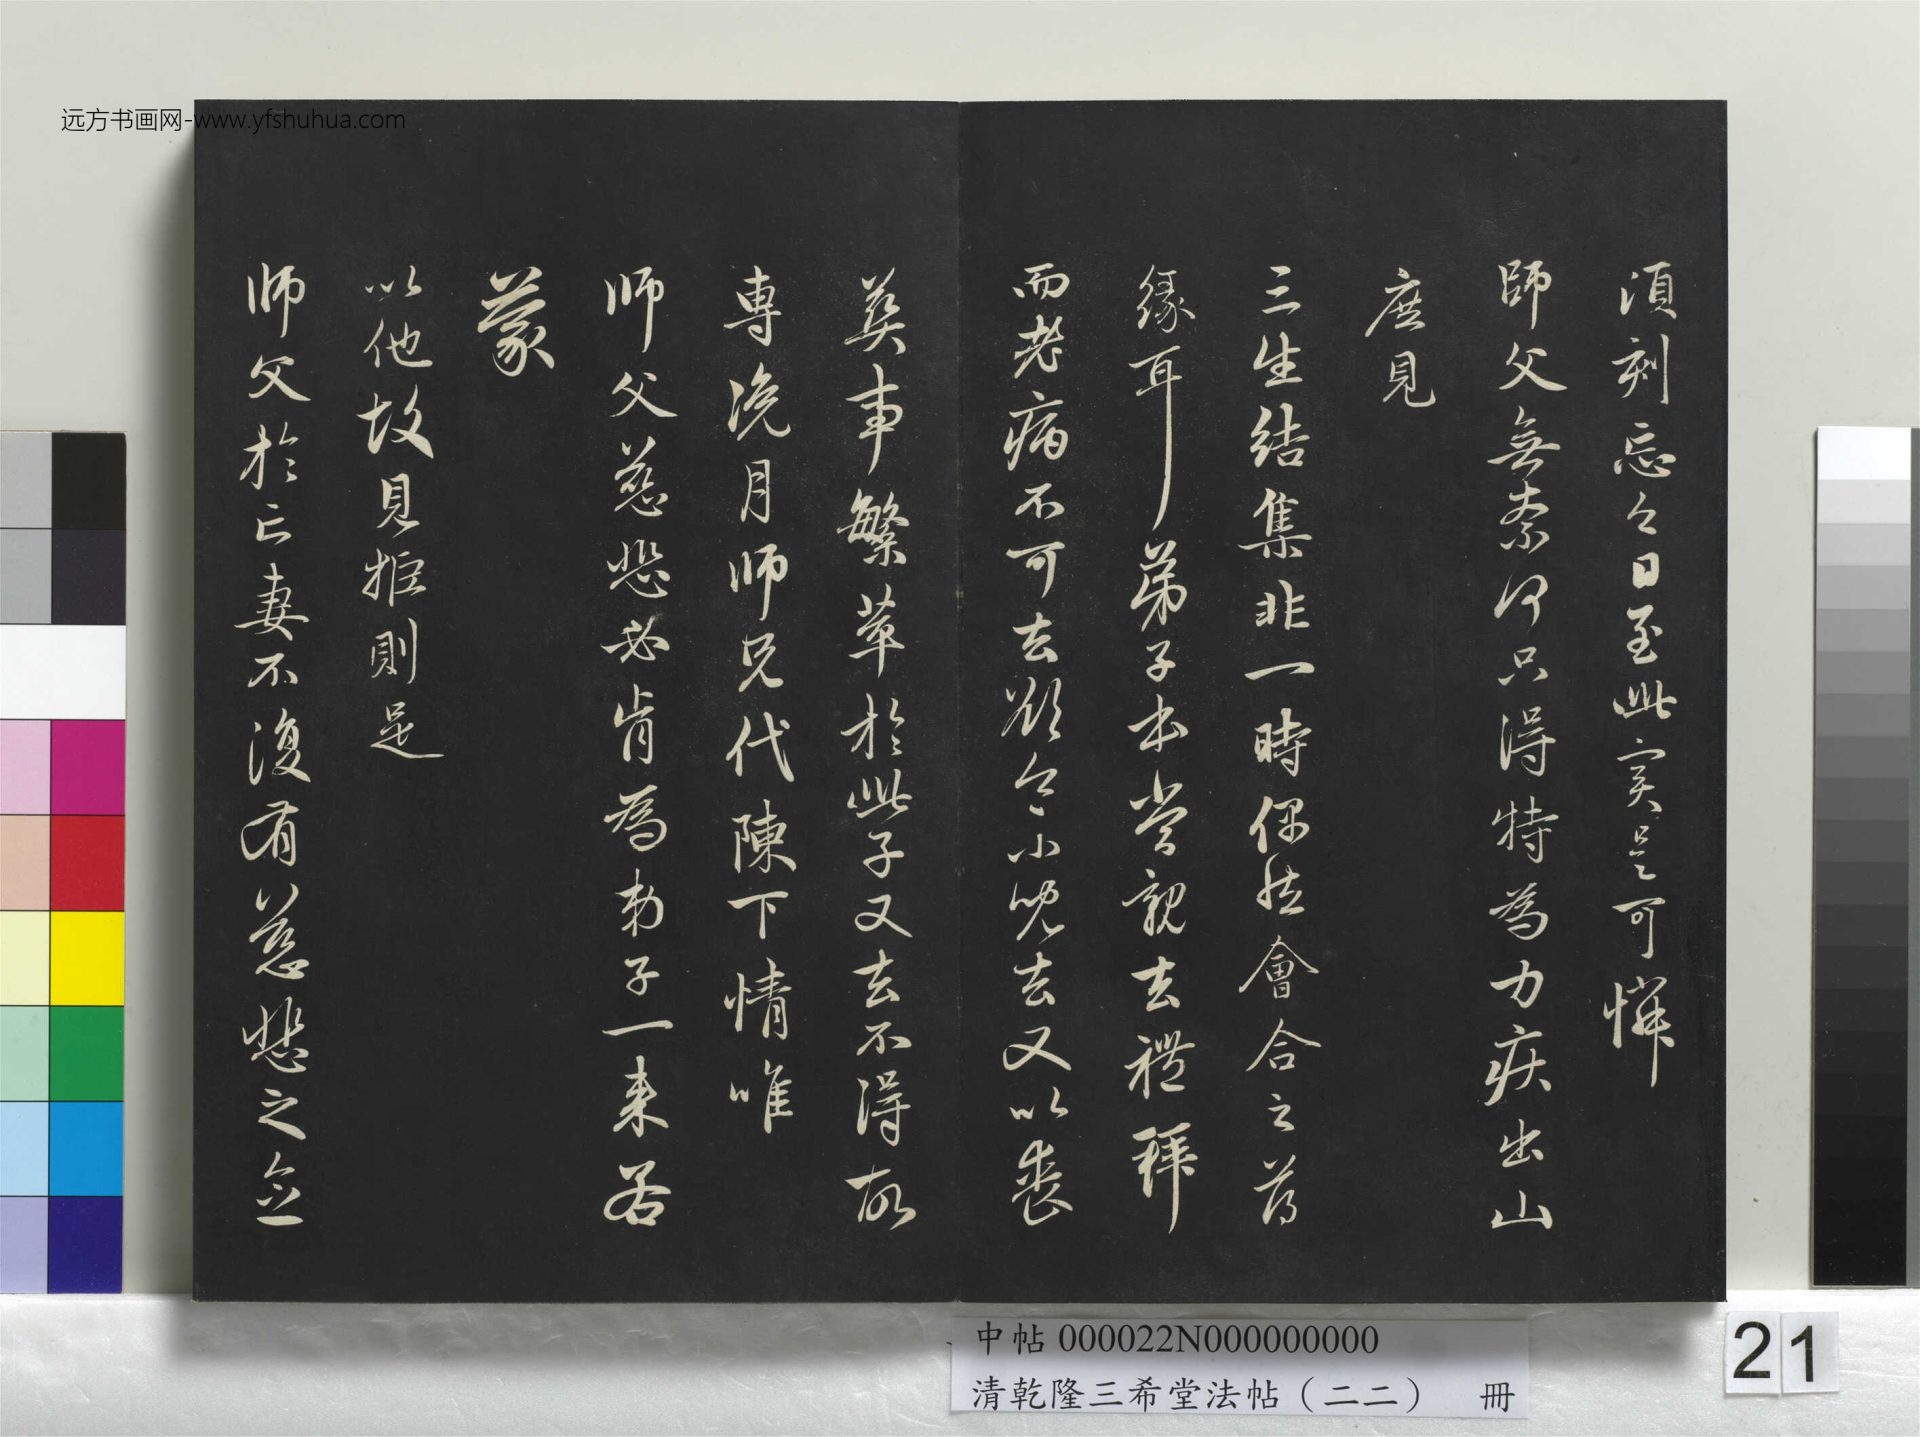 远方书画网-www.yfshuhua.com
須刻忘今日至此实是可憐
師父無奈何只得特為力疾出山
庶見
三生結集非一時偶然會合之薄
緣耳弟子本當親去禮拜
而老病不可去欲令小兒去又以喪
葬事繁萃於此子又去不得故
專浼月师兄代陳下情唯
师父慈悲必肯為弟子一来若
蒙
以他故見拒則是
师父於亡妻不復有慈悲之念
中帖 000022N000000000
清乾隆三希堂法帖（二二） 冊
21